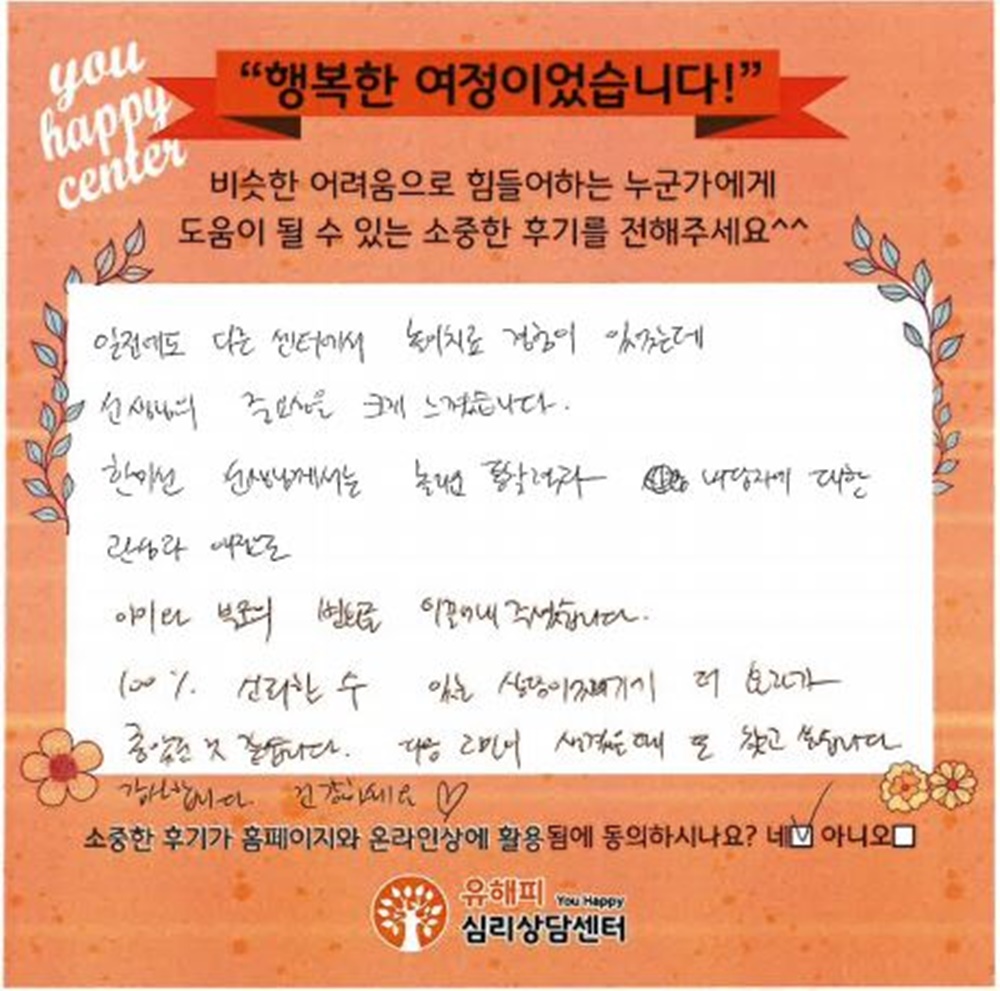 you
happy
center
“행복한 여정이었습니다!”
비슷한 어려움으로 힘들어하는 누군가에게
도움이 될 수 있는 소중한 후기를 전해주세요^^
일전에도 다른 센터에서 놀이치료 경험이 있었는데
선생님의 중요성을 크게 느꼈습니다.
한미선 선생님께서는 놀라운 통찰력과 내담자에 대한
관심과 애정으로
아이와 부모의 변화를 이끌어내 주셨습니다.
100%. 신뢰할 수 있는 상담이었기에 더 효과가
좋았던 것 같습니다. 다음 고민이 생겼을 때 또 찾고 싶습니다
감사합니다 건강하세요 ♡
소중한 후기가 홈페이지와 온라인상에 활용됨에 동의하시나요? 네☑ 아니오☐
유해피 You Happy
심리상담센터